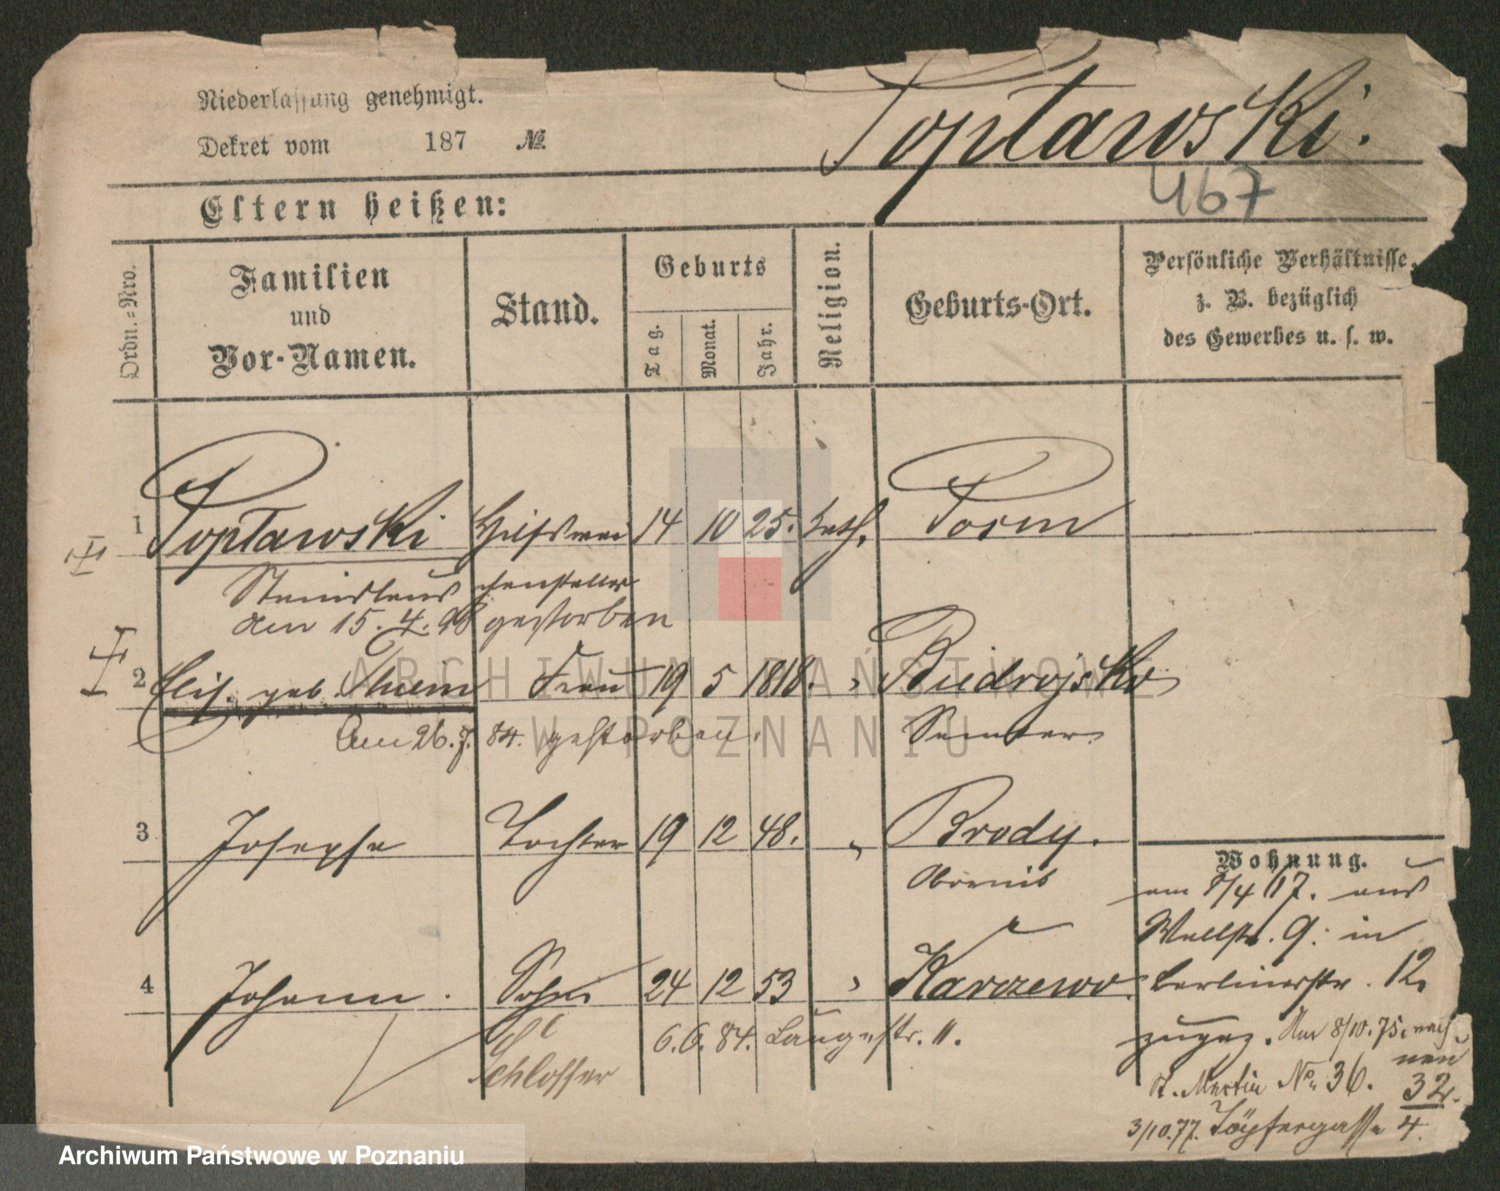 Niederlassung genehmigt.
Dekret vom 187 №
Poptawski.
467
Eltern heißen:
Ordn.=Nro.
Familien und Vor-Namen.
Stand.
Geburts
Tag.
Monat.
Jahr.
Religion.
Geburts-Ort.
Persönliche Verhältnisse,
z. B. bezüglich
des Gewerbes u. s. w.
1 Poptawski Hilfswei 14 10 25. kath. Posen
Stanislaus chensteller
am 15. 4. 98 gestorben
2 Elis. geb. Thiem Frau 19 5 1818. "
Samter
Am 26. 7. 84. gestorben.
3 Josepha Tochter 19 12 48. " Brody.
Obornik
4 Johann. Sohn 24 12 53 " Karczewo.
6.6.84. Langestr. 11.
Schlosser
Wohnung.
am 8/4 67. aus
Wallstr. 9. in
Berlinerstr. 12.
zugez. Am 8/10.75. nach
St. Martin No. 36. neu 32.
3/10.77. Töpfergasse 4.
ARCHIWUM PAŃSTWOWE
W POZNANIU
Archiwum Państwowe w Poznaniu